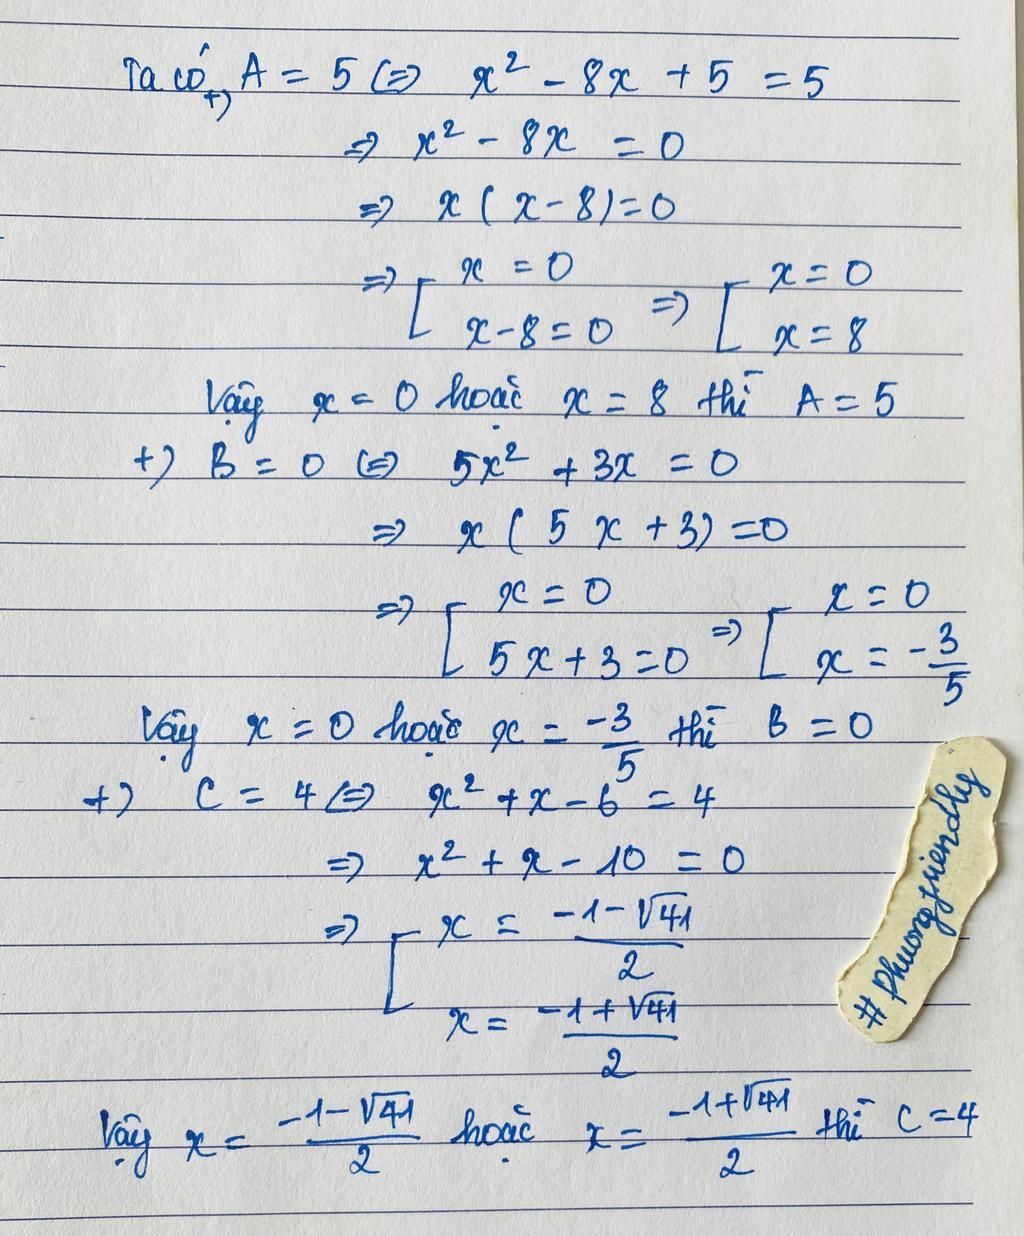 Ta có +) A = 5 <=> x² - 8x + 5 = 5
=> x² - 8x = 0
=> x ( x - 8 ) = 0
=> [ x = 0 => [ x = 0
x - 8 = 0 x = 8
Vậy x = 0 hoặc x = 8 thì A = 5
+) B = 0 <=> 5x² + 3x = 0
=> x ( 5x + 3 ) = 0
=> [ x = 0 => [ x = 0
5x + 3 = 0 x = -3/5
Vậy x = 0 hoặc x = -3/5 thì B = 0
+) C = 4 <=> x² + x - 6 = 4
=> x² + x - 10 = 0
=> [ x = (-1-√41)/2
x = (-1+√41)/2
Vậy x = (-1-√41)/2 hoặc x = (-1+√41)/2 thì C = 4
# phuongfriendly